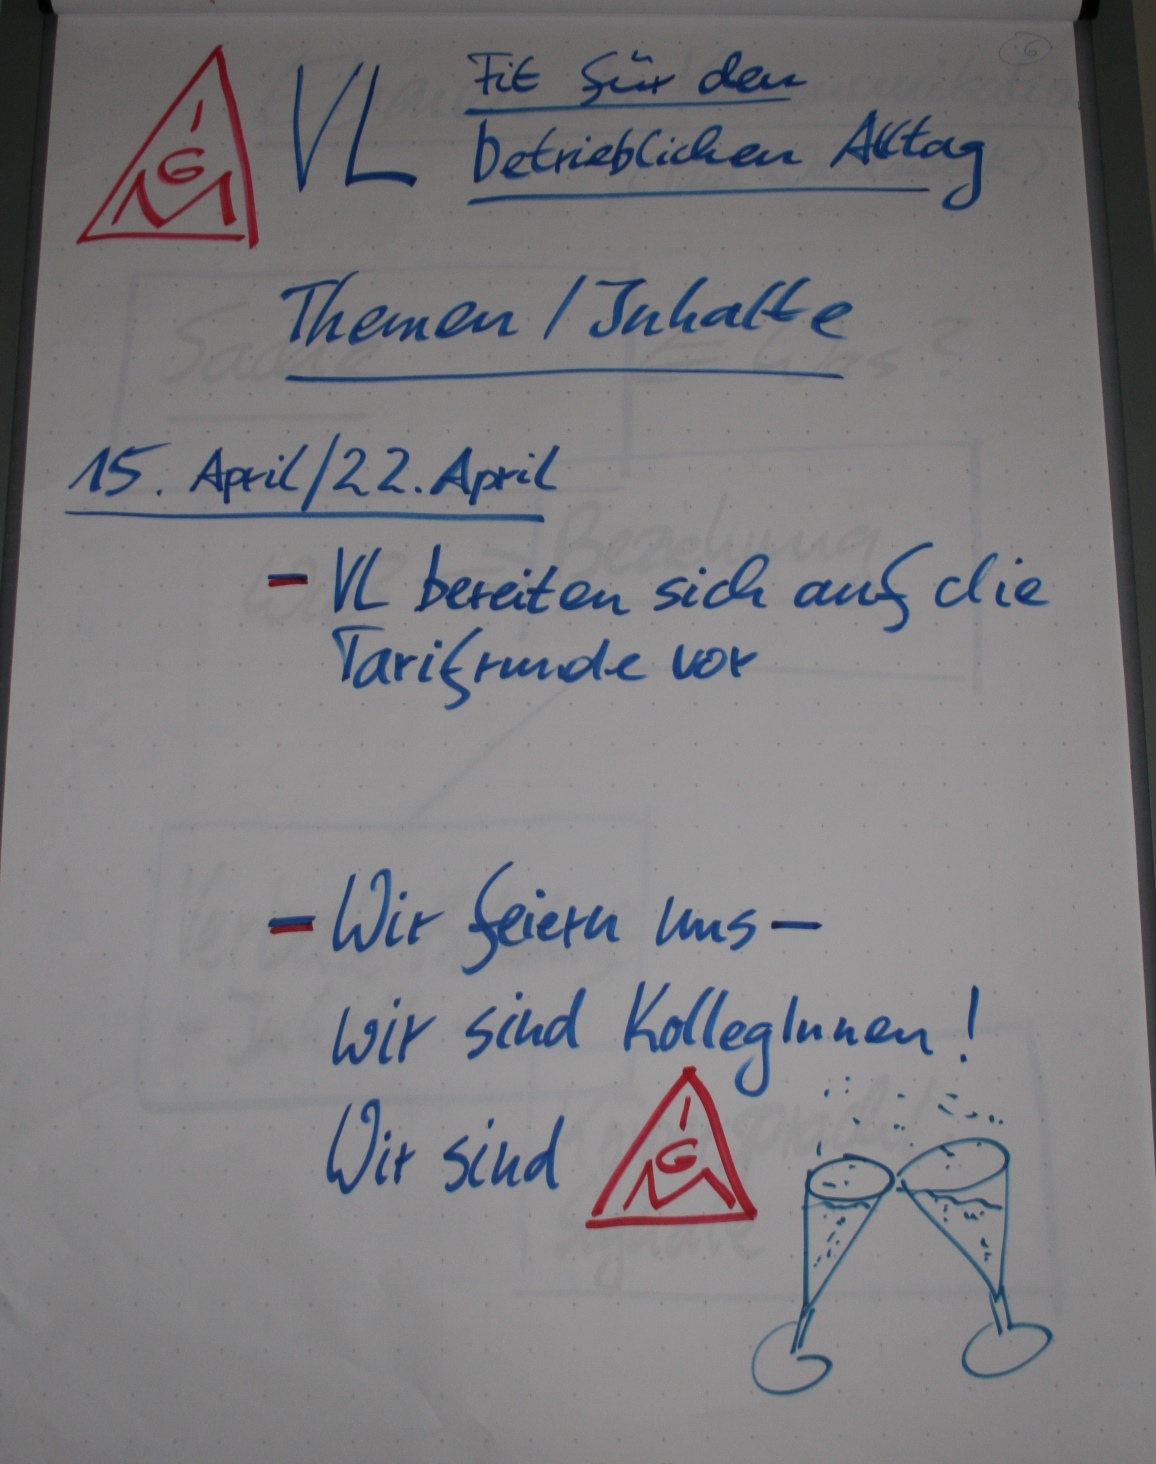 VL Fit für den
betrieblichen Alltag
IGM
6
Themen / Inhalte
15. April/22. April
- VL bereiten sich auf die
Tarifrunde vor
- Wir feiern uns -
wir sind KollegInnen!
Wir sind IGM